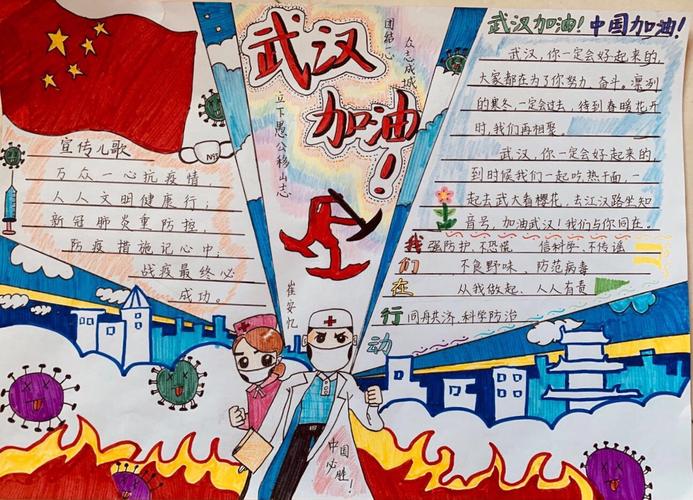 武汉
加油!
团结一心
众志成城
立下愚公移山志
武汉加油!中国加油!
宣传儿歌
万众一心抗疫情,
人人文明健康行;
新冠肺炎重防控,
防疫措施记心中;
战疫最终必
成功。
N95
武汉,你一定会好起来的,
大家都在为了你努力、奋斗。凛冽
的寒冬,一定会过去,待到春暖花开
时,我们再相聚。
武汉,你一定会好起来的,
到时候我们一起吃热干面,一
起去武大看樱花,去江汉路坐知
音号,加油武汉!我们与你同在。
我们在行动
强防护,不恐慌 信科学,不传谣
不食野味、防范病毒
从我做起、人人有责
同舟共济,科学防治
崔安忆
中国
必胜!